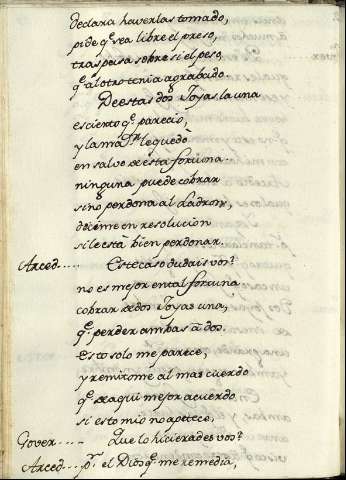 declara haverlas tomado,
pide q.e sea libre el preso,
tras pesa sobre si el peso
q.e al otro tenia agrabado.
De estas dos Joyas la una
es cierto q.e parecio,
y la ma le quedò
en salvo de esta fortuna..
ninguna puede cobrar
sino perdona al Ladron,
deceme en resolucion
si le està bien perdonar.
Arced..... Este caso dudais vos?
no es mejor en tal fortuna
cobrar de dos Joyas una,
q.e perder ambas à dos.
esto solo me parece,
y remitome al mas cuerdo
q.e de aqui mejor acuerdo
si esto mio no apetece,
Gover..... Que lo hicierades vos?
Arced..... p.r el Dios q.e me remedia,